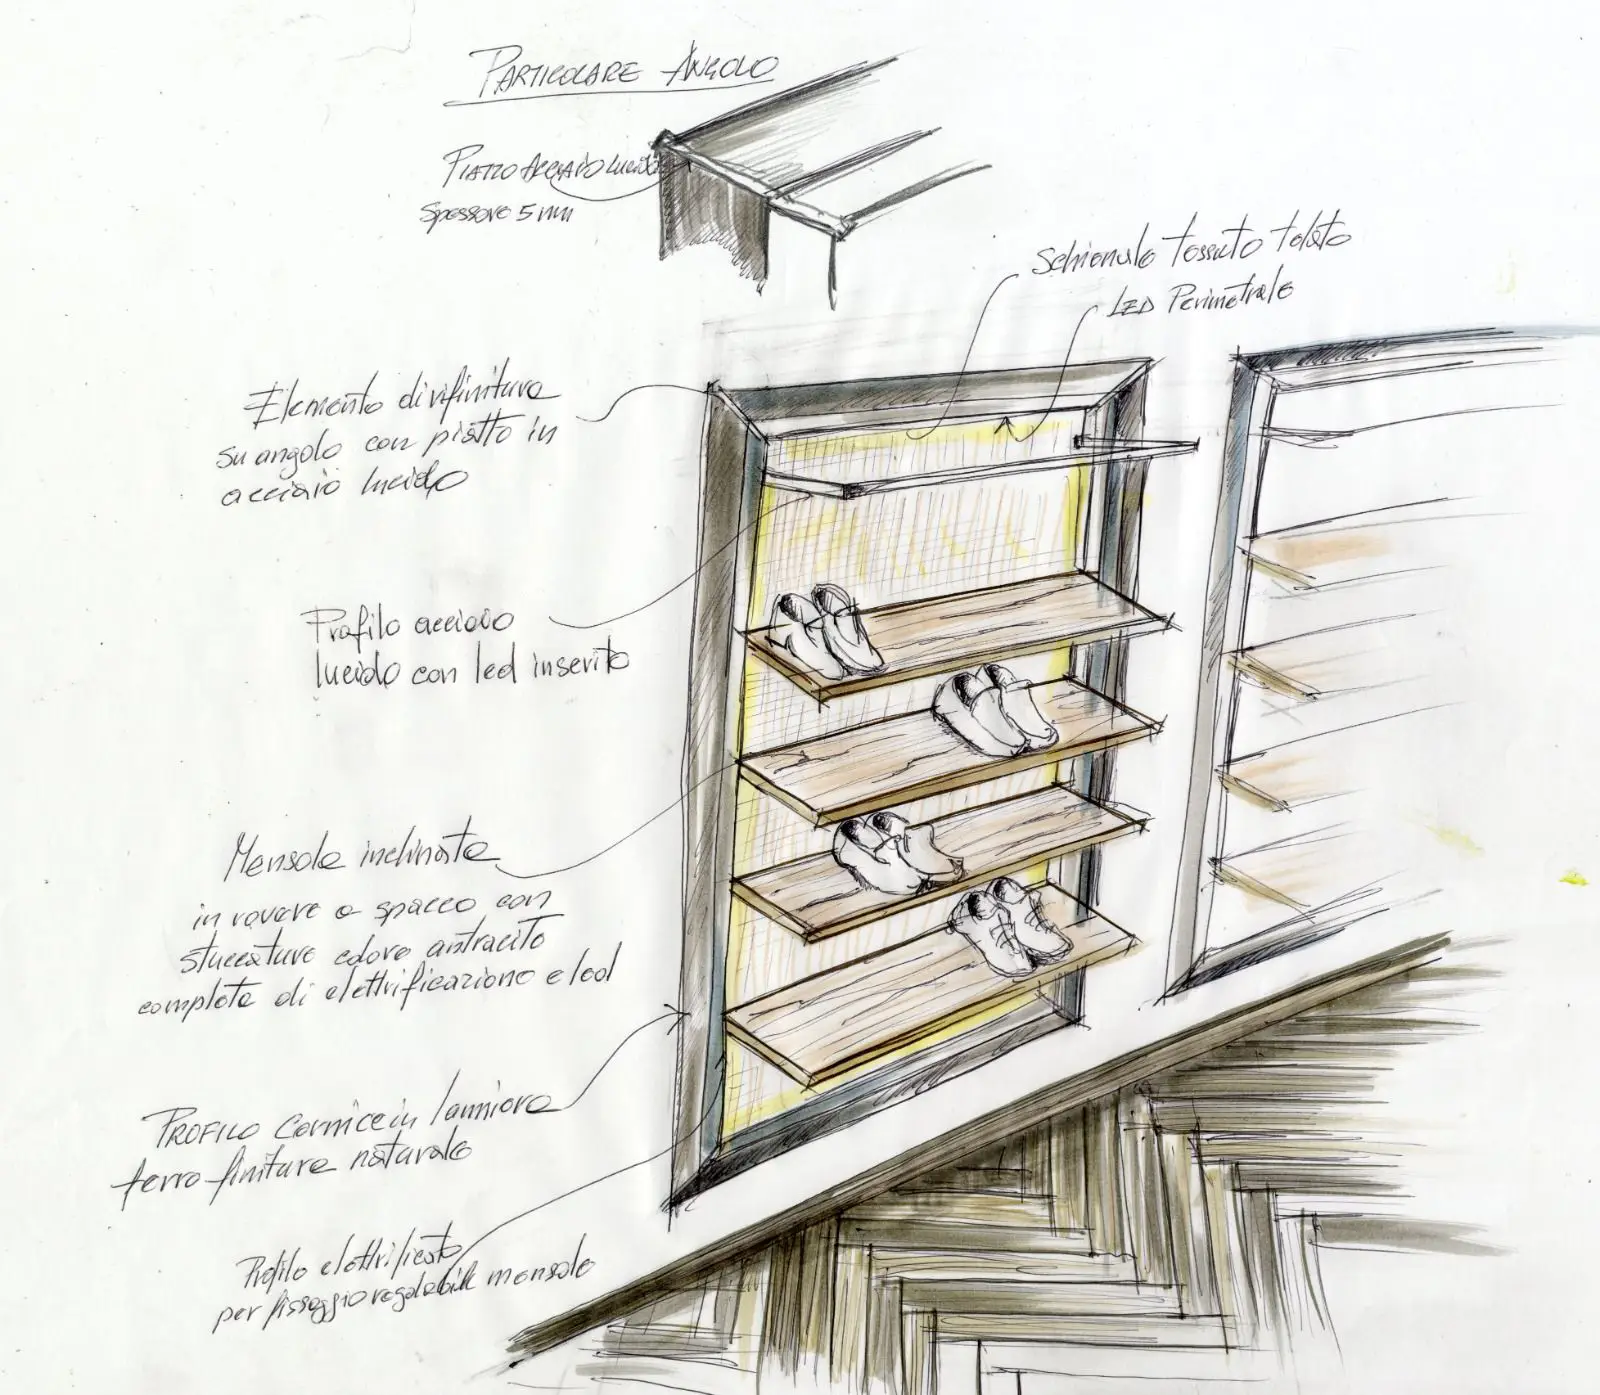 PARTICOLARE ANGOLO
PIATTO ACCIAIO LUCIDO
Spessore 5 mm
Schienale tessuto telato
LED Perimetrale
Elemento di rifinitura
su angolo con piatto in
acciaio lucido
Profilo acciaio
lucido con led inserito
Mensola inclinata
in rovere a spacco con
stuccature colore antracite
complete di elettrificazione e led
PROFILO cornice in lamiera
ferro finitura naturale
Profilo elettrificato
per fissaggio regolabile mensole